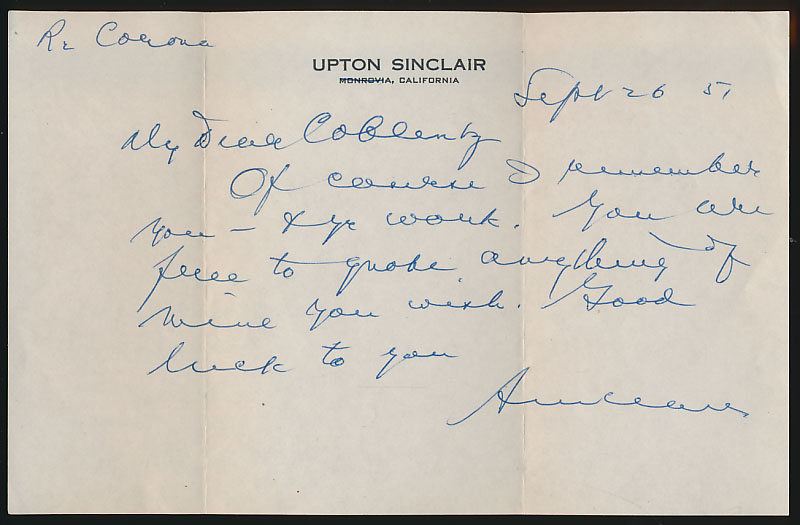 Rt Corona
UPTON SINCLAIR
MONROVIA, CALIFORNIA
Sept 26 51
My Dear Coblentz
Of course I remember
you – & yr work. You are
free to quote anything of
mine you wish. Good
luck to you
Sinclair